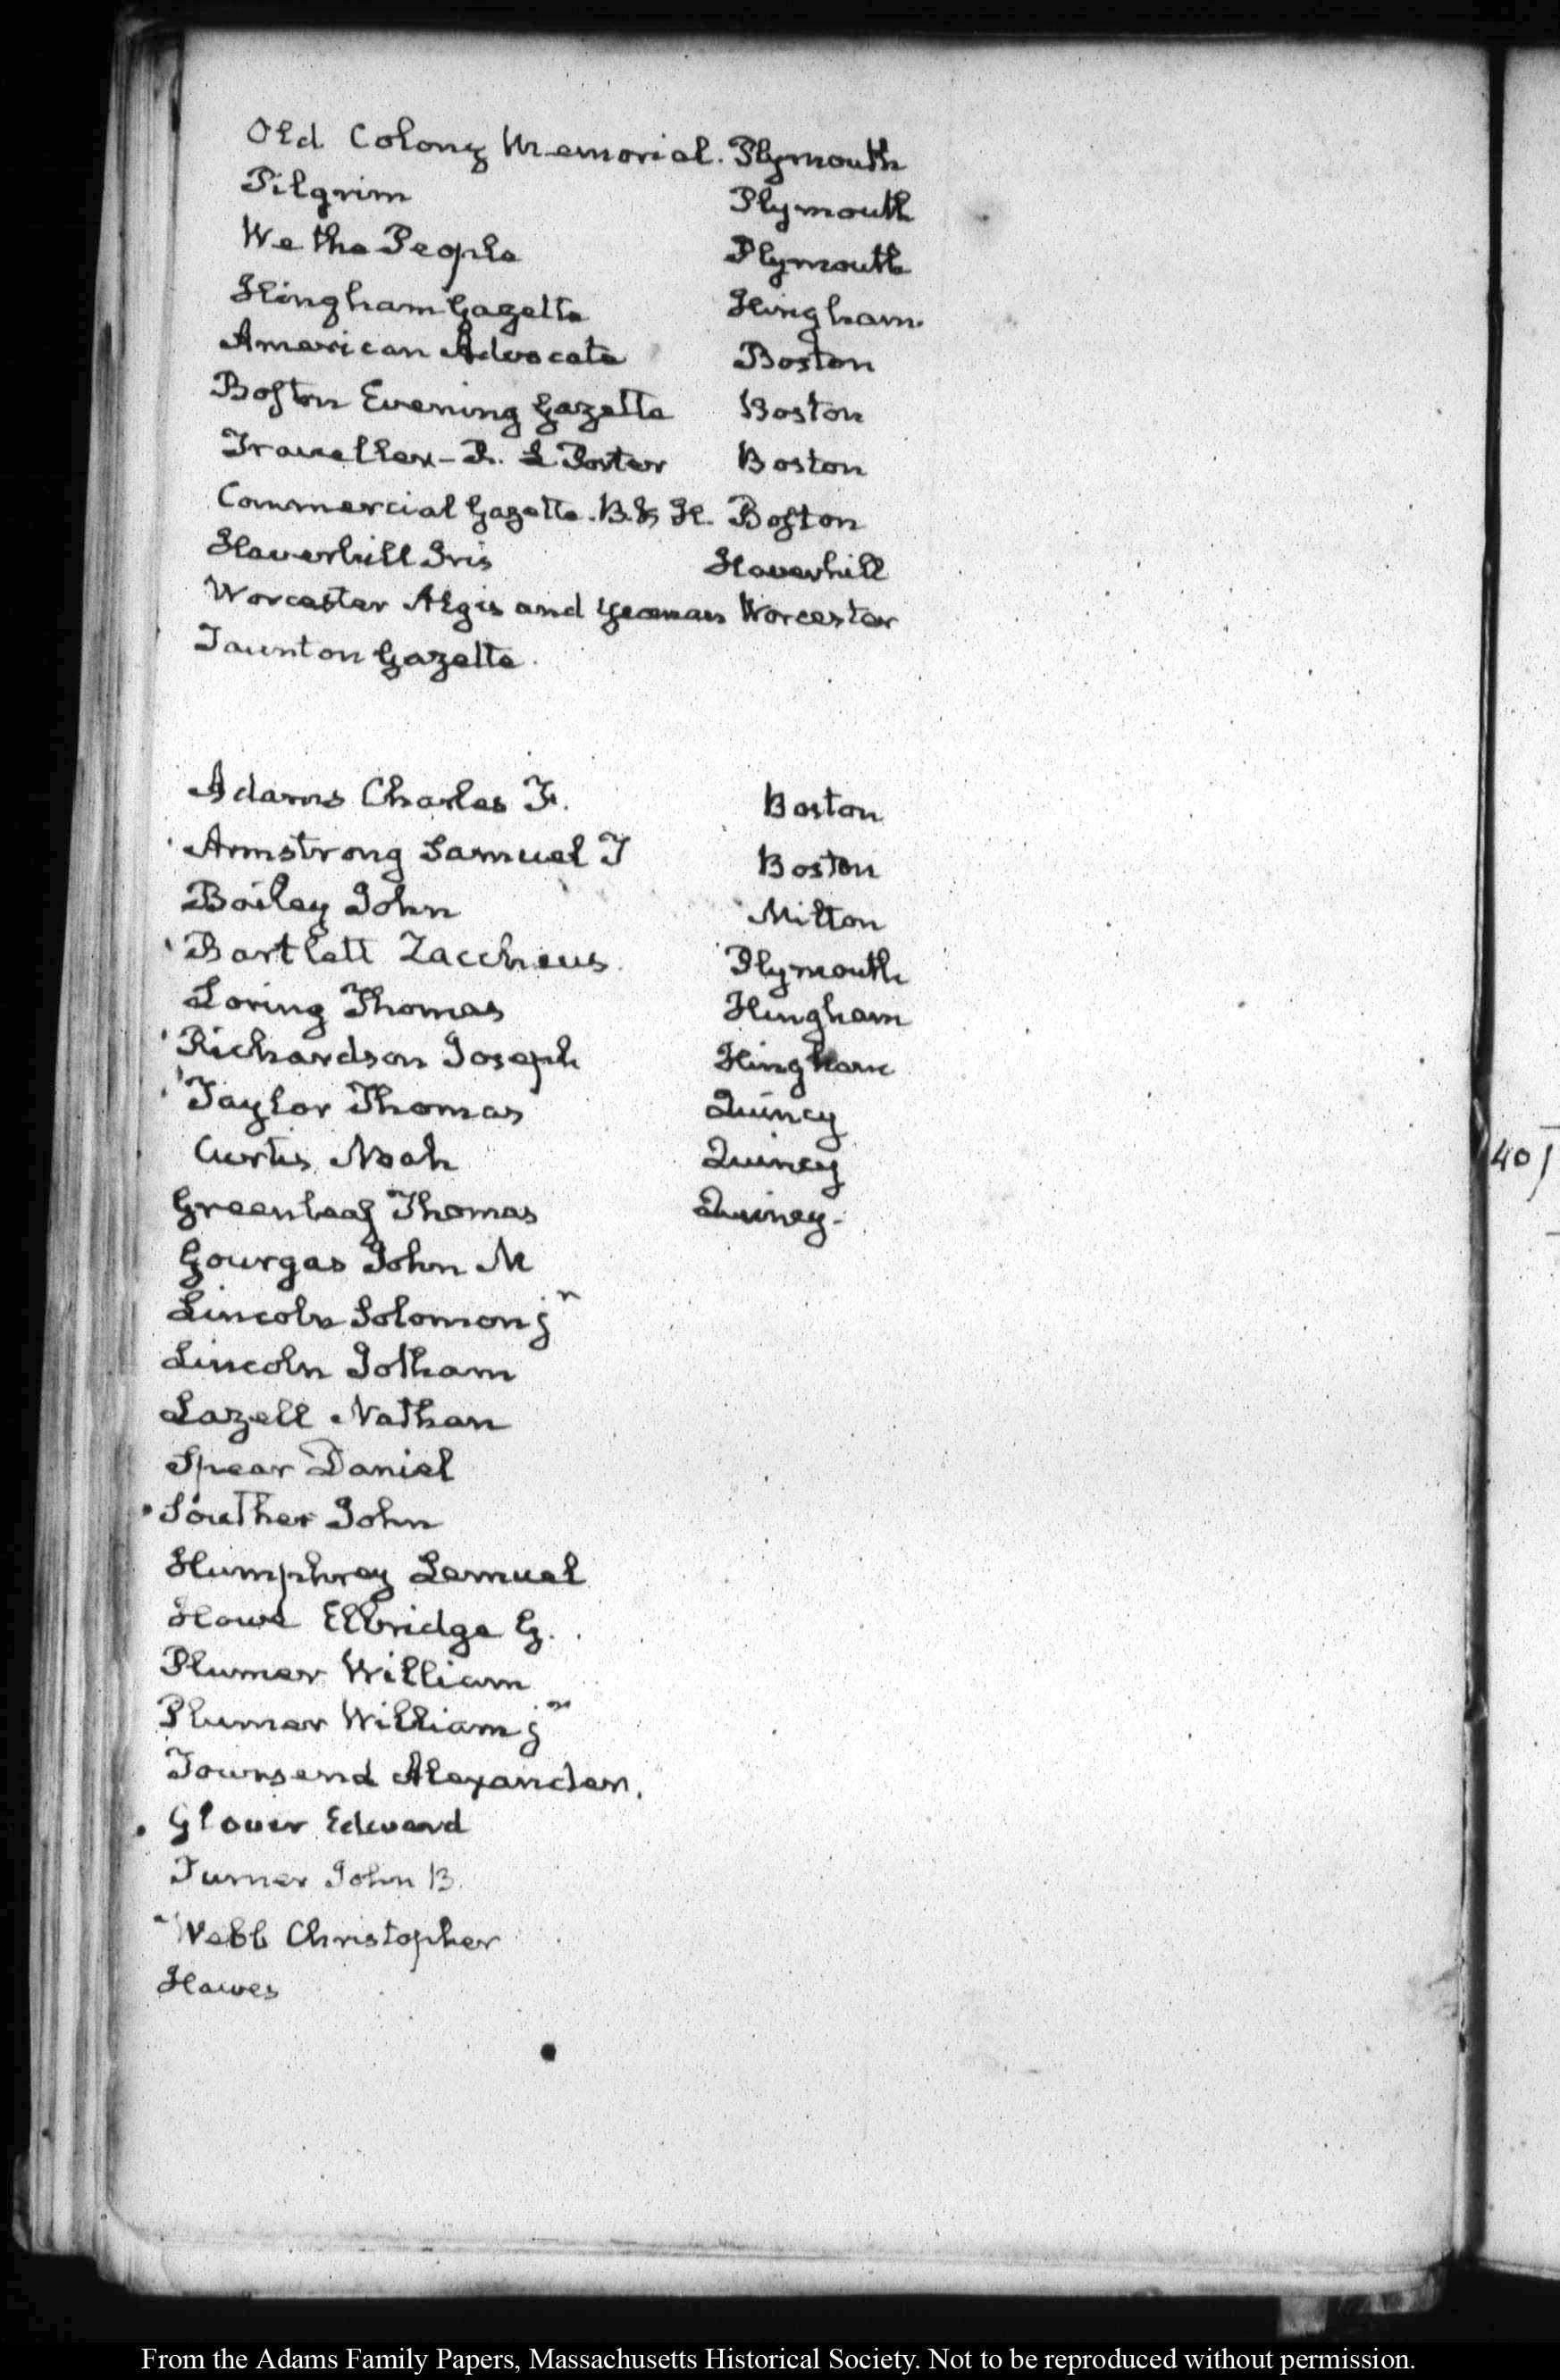 Old Colony Memorial. Plymouth
Pilgrim Plymouth
We the People Plymouth
Hingham Gazette Hingham.
American Advocate Boston
Boston Evening Gazette Boston
Traveller - R. L Porter Boston
Commercial Gazette. B. & H. Boston
Haverhill Iris Haverhill
Worcester Aegis and Yeoman Worcester
Taunton Gazette.
Adams Charles F. Boston
Armstrong Samuel T Boston
Bailey John Milton
Bartlett Zaccheus. Plymouth
Loring Thomas Hingham
Richardson Joseph Hingham
Taylor Thomas Quincy
Curtis Noah Quincy
Greenleaf Thomas Quincy-
Gourgas John M
Lincoln Solomon jr
Lincoln Jotham
Lazell Nathan
Spear Daniel
Souther John
Humphrey Lemuel
Howe Elbridge G.
Plumer William
Plumer William jr
Townsend Alexander.
Glover Edward
Turner John B.
Webb Christopher
Hawes
40
From the Adams Family Papers, Massachusetts Historical Society. Not to be reproduced without permission.